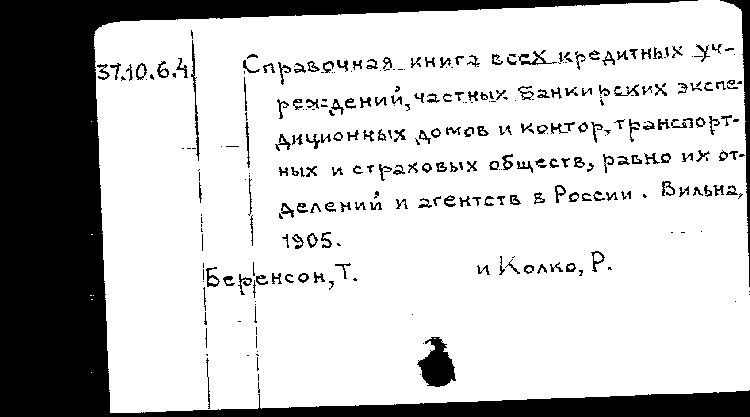 37.10.6.4.
Справочная книга всех кредитных уч-
реждений, частных банкирских экспе-
диционных домов и контор, транспорт-
ных и страховых обществ, равно их от-
делений и агентств в России. Вильна,
1905.
Беренсон, Т. и Колко, Р.